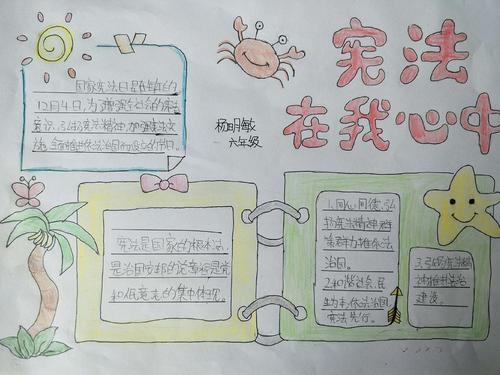 宪法
在我心中
国家宪法日是在每年的
12月4日,为了增强全社会的宪法
意识,弘扬宪法精神,加强宪法实
施,全面推进依法治国而设立的节日。
杨明敏
六年级
宪法是国家的根本法,
是治国安邦的总章程是党
和人民意志的集中体现。
1.同心同德,弘
扬宪法精神群
策群力推依法
治国。
2.和谐社会,民
生为本,依法治国
宪法先行。
3.弘扬宪法精
神推进法治
建设。